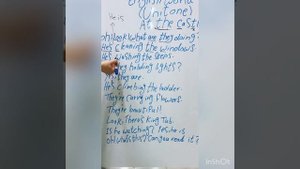 He is
English World
(Unit one)
At the castle
oh! look! what are they doing?
He's cleaning the windows.
He's washing the steps.
holding lights?
they are.
He's climbing the ladder.
They're carrying flowers.
They're beautiful!
Look, There's King Tub.
Is he watching? Yes, he is
oh! what's this? Can you read it?
InShOt